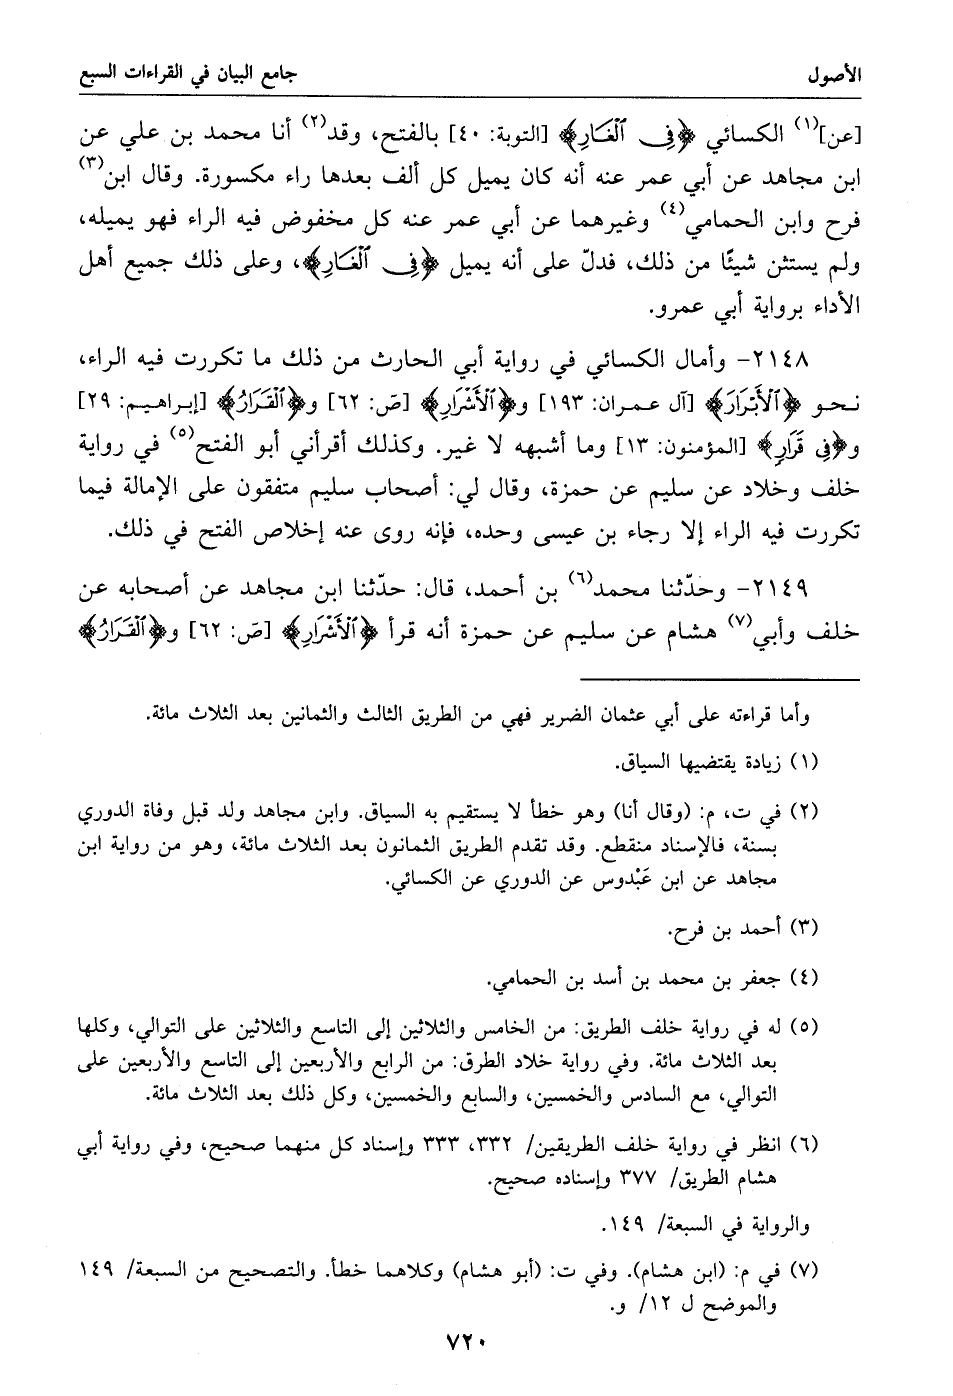 الأصول
جامع البيان في القراءات السبع
[عن](١) الكسائي ﴿فِي ٱلْغَارِ﴾ [التوبة: ٤٠] بالفتح، وقد(٢) أنا محمد بن علي عن
ابن مجاهد عن أبي عمر عنه أنه كان يميل كل ألف بعدها راء مكسورة. وقال ابن(٣)
فرح وابن الحمامي(٤) وغيرهما عن أبي عمر عنه كل مخفوض فيه الراء فهو يميله،
ولم يستثن شيئًا من ذلك، فدلّ على أنه يميل ﴿فِي ٱلْغَارِ﴾، وعلى ذلك جميع أهل
الأداء برواية أبي عمرو.
٢١٤٨- وأمال الكسائي في رواية أبي الحارث من ذلك ما تكررت فيه الراء،
نحو ﴿ٱلْأَبْرَارَ﴾ [آل عمران: ١٩٣] و﴿ٱلْأَشْرَارِ﴾ [صَ: ٦٢] و﴿ٱلْقَرَارُ﴾ [إبراهيم: ٢٩]
و﴿فِي قَرَارٍ﴾ [المؤمنون: ١٣] وما أشبهه لا غير. وكذلك أقرأني أبو الفتح(٥) في رواية
خلف وخلاد عن سليم عن حمزة، وقال لي: أصحاب سليم متفقون على الإمالة فيما
تكررت فيه الراء إلا رجاء بن عيسى وحده، فإنه روى عنه إخلاص الفتح في ذلك.
٢١٤٩- وحدّثنا محمد(٦) بن أحمد، قال: حدّثنا ابن مجاهد عن أصحابه عن
خلف وأبي(٧) هشام عن سليم عن حمزة أنه قرأ ﴿ٱلْأَشْرَارِ﴾ [صَ: ٦٢] و﴿ٱلْقَرَارُ﴾
وأما قراءته على أبي عثمان الضرير فهي من الطريق الثالث والثمانين بعد الثلاث مائة.
(١) زيادة يقتضيها السياق.
(٢) في ت، م: (وقال أنا) وهو خطأ لا يستقيم به السياق. وابن مجاهد ولد قبل وفاة الدوري
بسنة، فالإسناد منقطع. وقد تقدم الطريق الثمانون بعد الثلاث مائة، وهو من رواية ابن
مجاهد عن ابن عَبْدوس عن الدوري عن الكسائي.
(٣) أحمد بن فرح.
(٤) جعفر بن محمد بن أسد بن الحمامي.
(٥) له في رواية خلف الطريق: من الخامس والثلاثين إلى التاسع والثلاثين على التوالي، وكلها
بعد الثلاث مائة. وفي رواية خلاد الطرق: من الرابع والأربعين إلى التاسع والأربعين على
التوالي، مع السادس والخمسين، والسابع والخمسين، وكل ذلك بعد الثلاث مائة.
(٦) انظر في رواية خلف الطريقين/ ٣٣٢، ٣٣٣ وإسناد كل منهما صحيح، وفي رواية أبي
هشام الطريق/ ٣٧٧ وإسناده صحيح.
والرواية في السبعة/ ١٤٩.
(٧) في م: (ابن هشام). وفي ت: (أبو هشام) وكلاهما خطأ. والتصحيح من السبعة/ ١٤٩
والموضح ل ١٢/ و.
٧٢٠